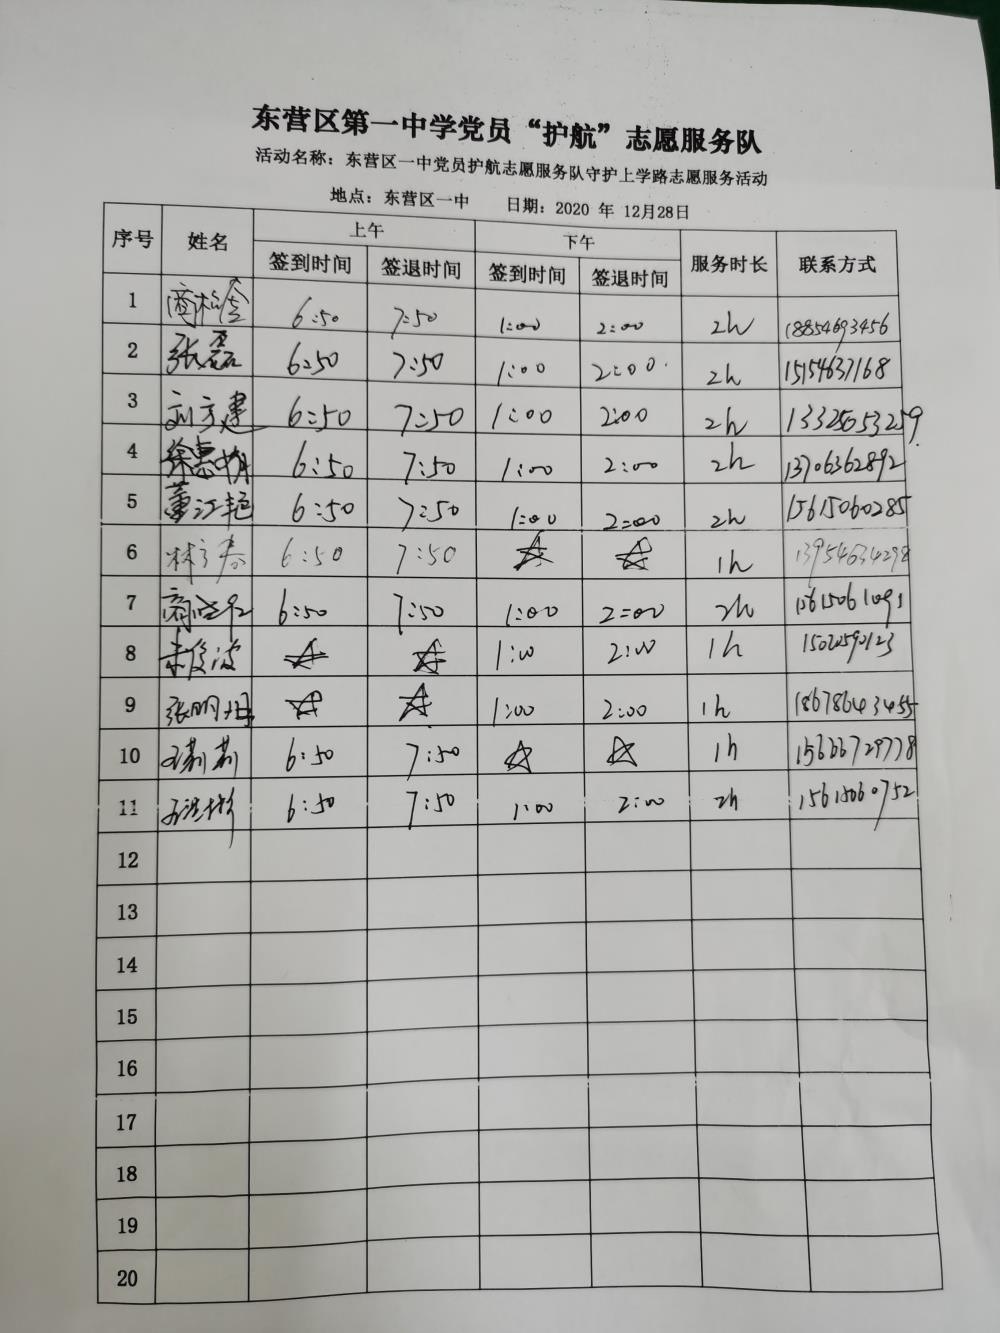 东营区第一中学党员“护航”志愿服务队
活动名称：东营区一中党员护航志愿服务队守护上学路志愿服务活动
地点：东营区一中 日期：2020 年 12月28日
序号 姓名 上午 下午 服务时长 联系方式
签到时间 签退时间 签到时间 签退时间
1 6:50 7:50 1:00 2:00 2h 18854693456
2 张磊 6:50 7:50 1:00 2:00 2h 15154637168
3 刘方建 6:50 7:50 1:00 2:00 2h 13325053259
4 徐惠娟 6:50 7:50 1:00 2:00 2h 13706362892
5 董江艳 6:50 7:50 1:00 2:00 2h 15615060285
6 林方春 6:50 7:50 1h 13954634298
7 6:50 7:50 1:00 2:00 2h 15615061091
8 1:00 2:00 1h
9 张明娟 1:00 2:00 1h 18678643455
10 王莉莉 6:50 7:50 1h
11 6:50 7:50 1:00 2:00 2h 15615060752
12
13
14
15
16
17
18
19
20